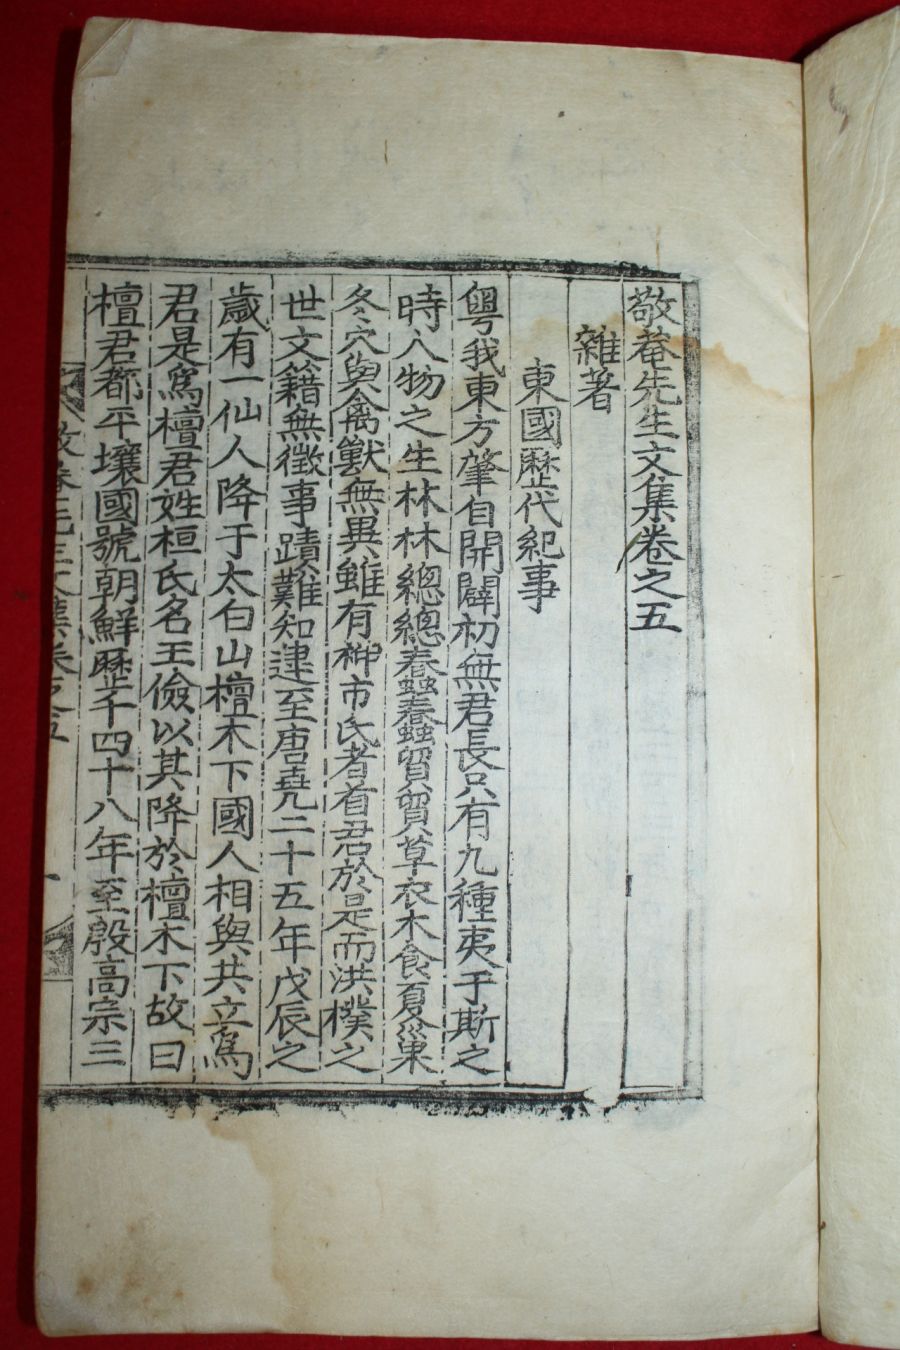 敬菴先生文集卷之五
雜著
東國歷代紀事
粤我東方肇自開闢初無君長只有九種夷于斯之
時人物之生林林總總蠢蠢蠢蠢貿貿草衣木食夏巢
冬穴與禽獸無異雖有神市氏者首君於是而洪樸之
世文籍無徵事蹟難知逮至唐堯二十五年戊辰之
歲有一仙人降于太白山檀木下國人相與共立爲
君是爲檀君姓桓氏名王儉以其降於檀木下故曰
檀君都平壤國號朝鮮歷千四十八年至殷高宗三
敬菴先生文集卷之五 一